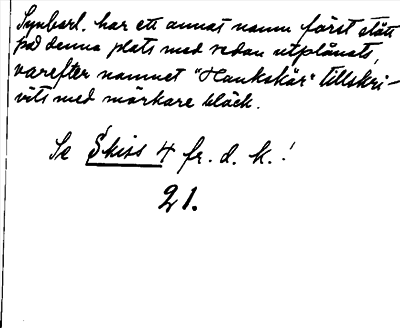 Synbarl. har ett annat namn först stått
på denna plats med sedan utplånats,
varefter namnet "Hankskär" tillskri-
vits med mörkare bläck.
Se Skiss 4 fr. d. k.!
21.